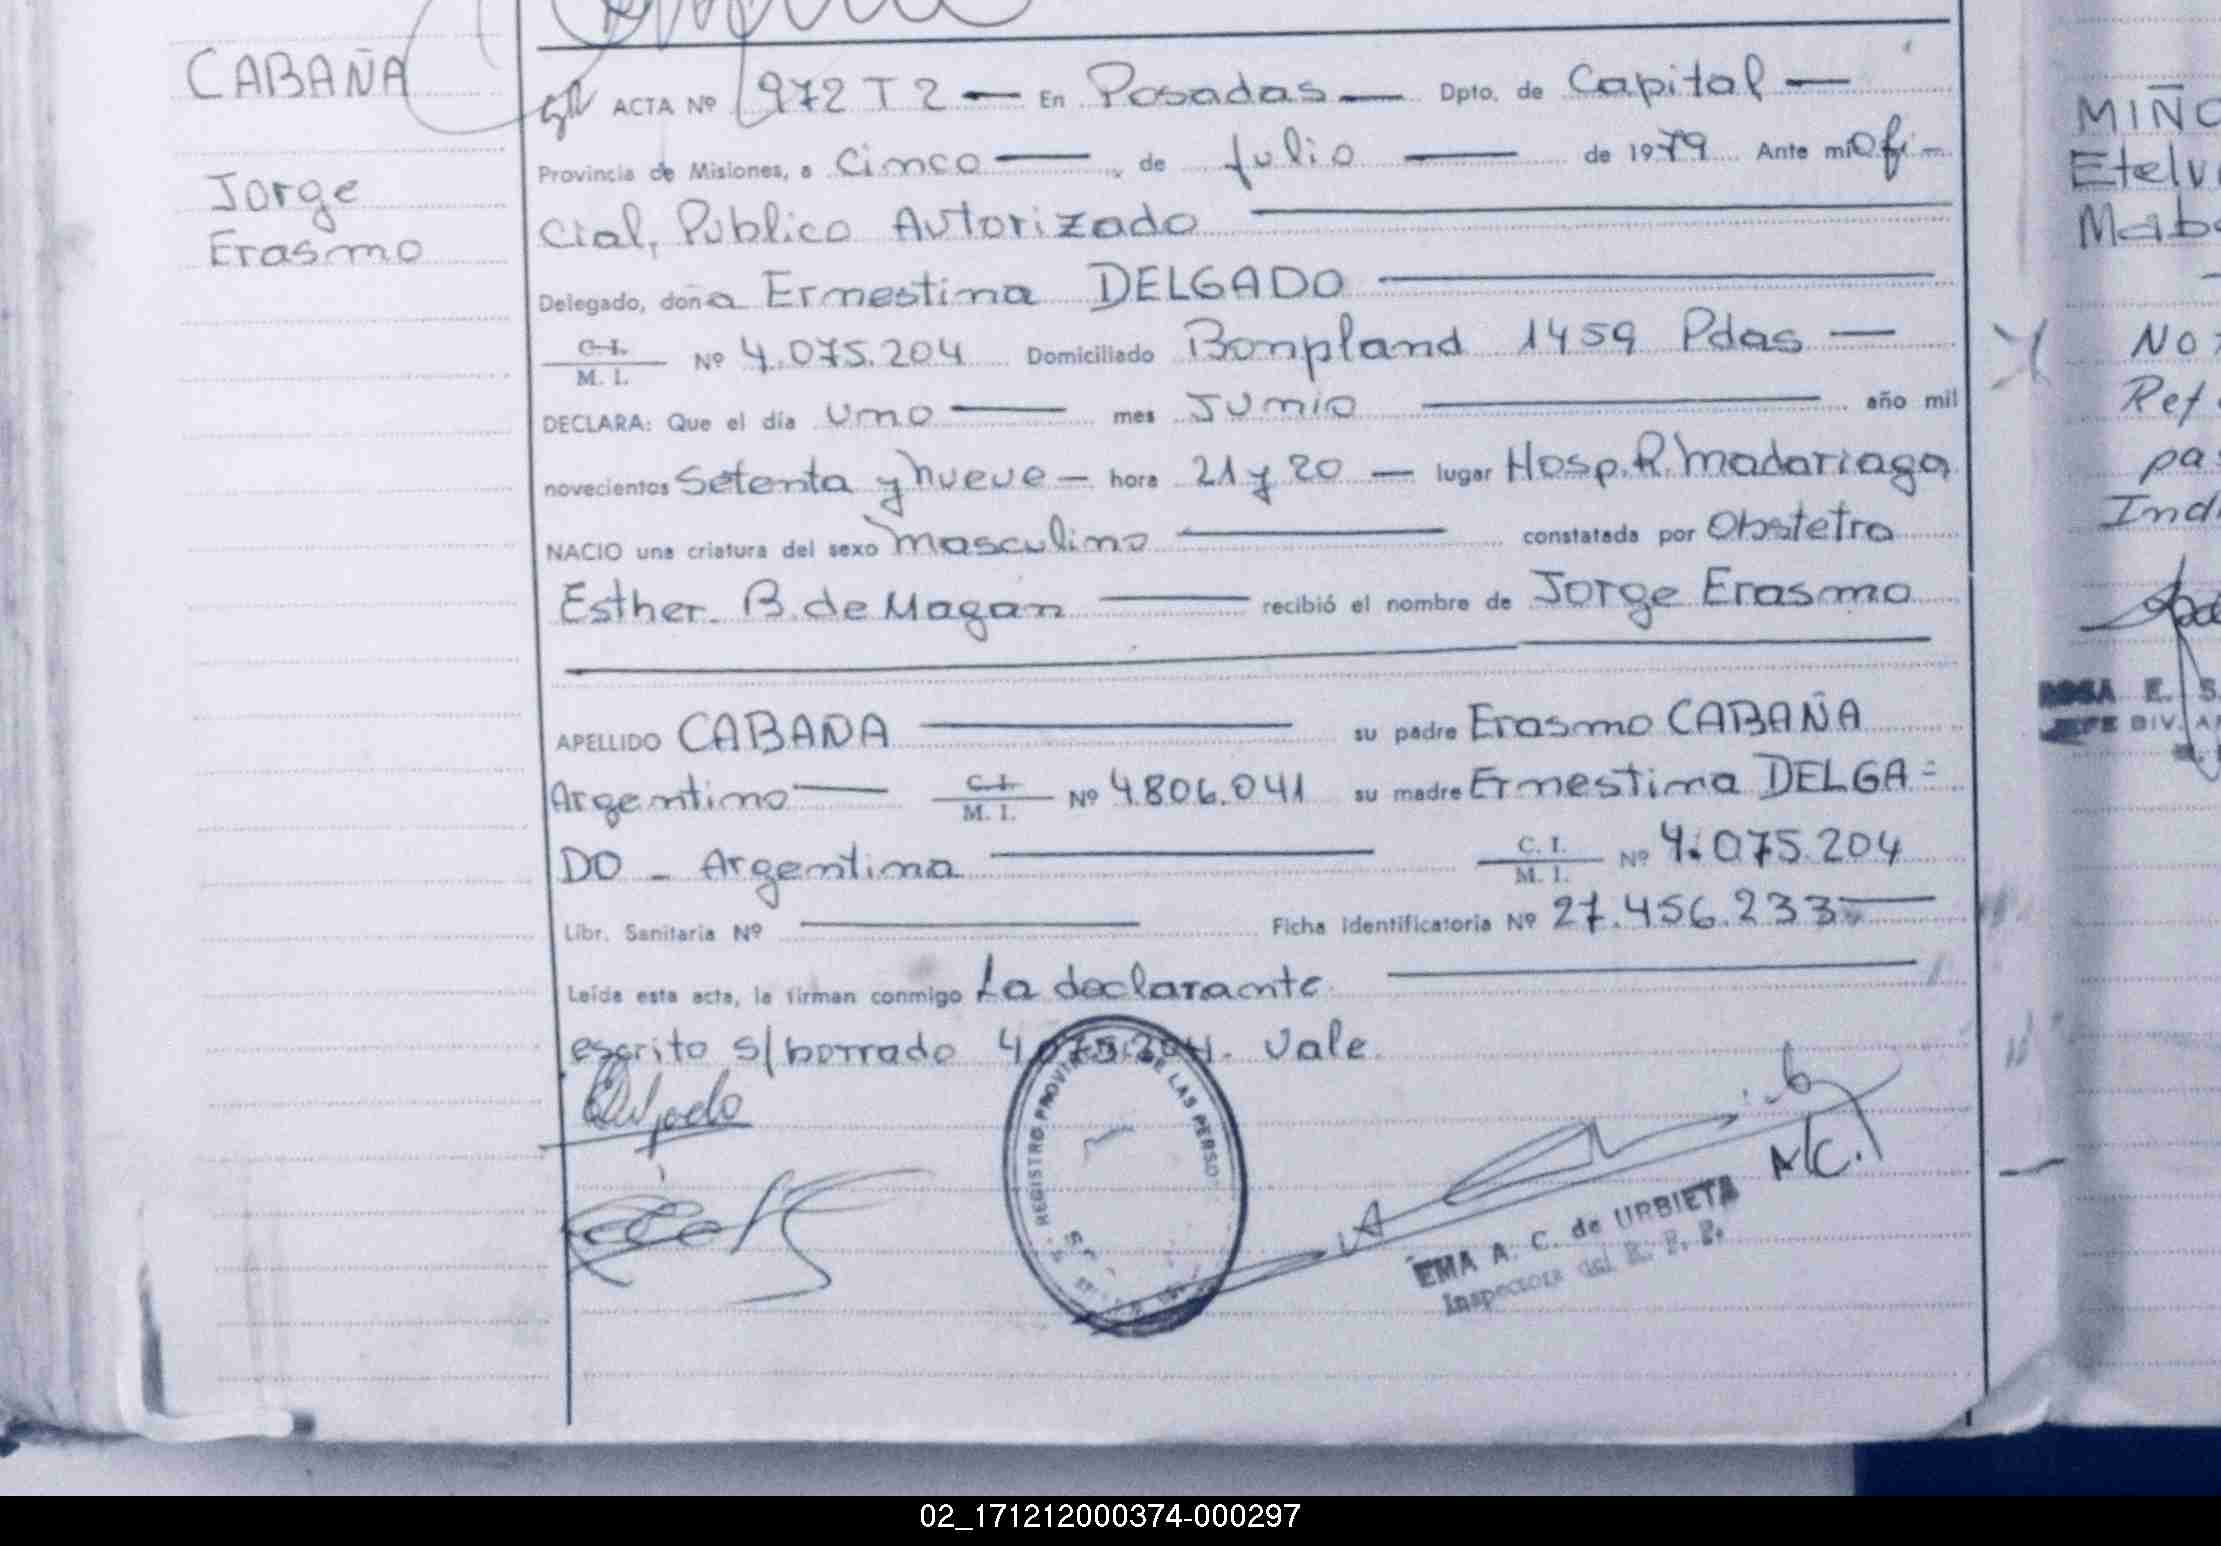 CABAÑA
Jorge
Erasmo
ACTA Nº 972 T 2 — En Posadas — Dpto. de Capital —
Provincia de Misiones, a Cinco — , de Julio — de 1979 Ante mi Ofi-
cial, Publico Autorizado
Delegado, doña Ernestina DELGADO
C.I. / M. I. Nº 4.075.204 Domiciliado Bonpland 1459 Pdas —
DECLARA: Que el día uno — mes Junio — año mil
novecientos Setenta y nueve — hora 21 y 20 — lugar Hosp. R. Madariaga,
NACIO una criatura del sexo masculino — constatada por Obstetra
Esther. B. de Magan — recibió el nombre de Jorge Erasmo
APELLIDO CABAÑA — su padre Erasmo CABAÑA
Argentino — C.I. / M. I. Nº 4.806.041 su madre Ernestina DELGA=
DO - Argentina — C. I. / M. I. Nº 4.075.204
Libr. Sanitaria Nº — Ficha Identificatoria Nº 27.456.233 —
Leída esta acta, la firman conmigo La declarante.
escrito s/borrado 4.075.204. Vale.
Delgado
REGISTRO PROVINCIAL DE LAS PERSO
A/C.
EMA A. C. de URBIETA
Inspectora del R. P. P.
MIÑO
Etelv
Mab
No
Ref
pa
Ind
ROSA E. S.
JEFE DIV. A
02_171212000374-000297